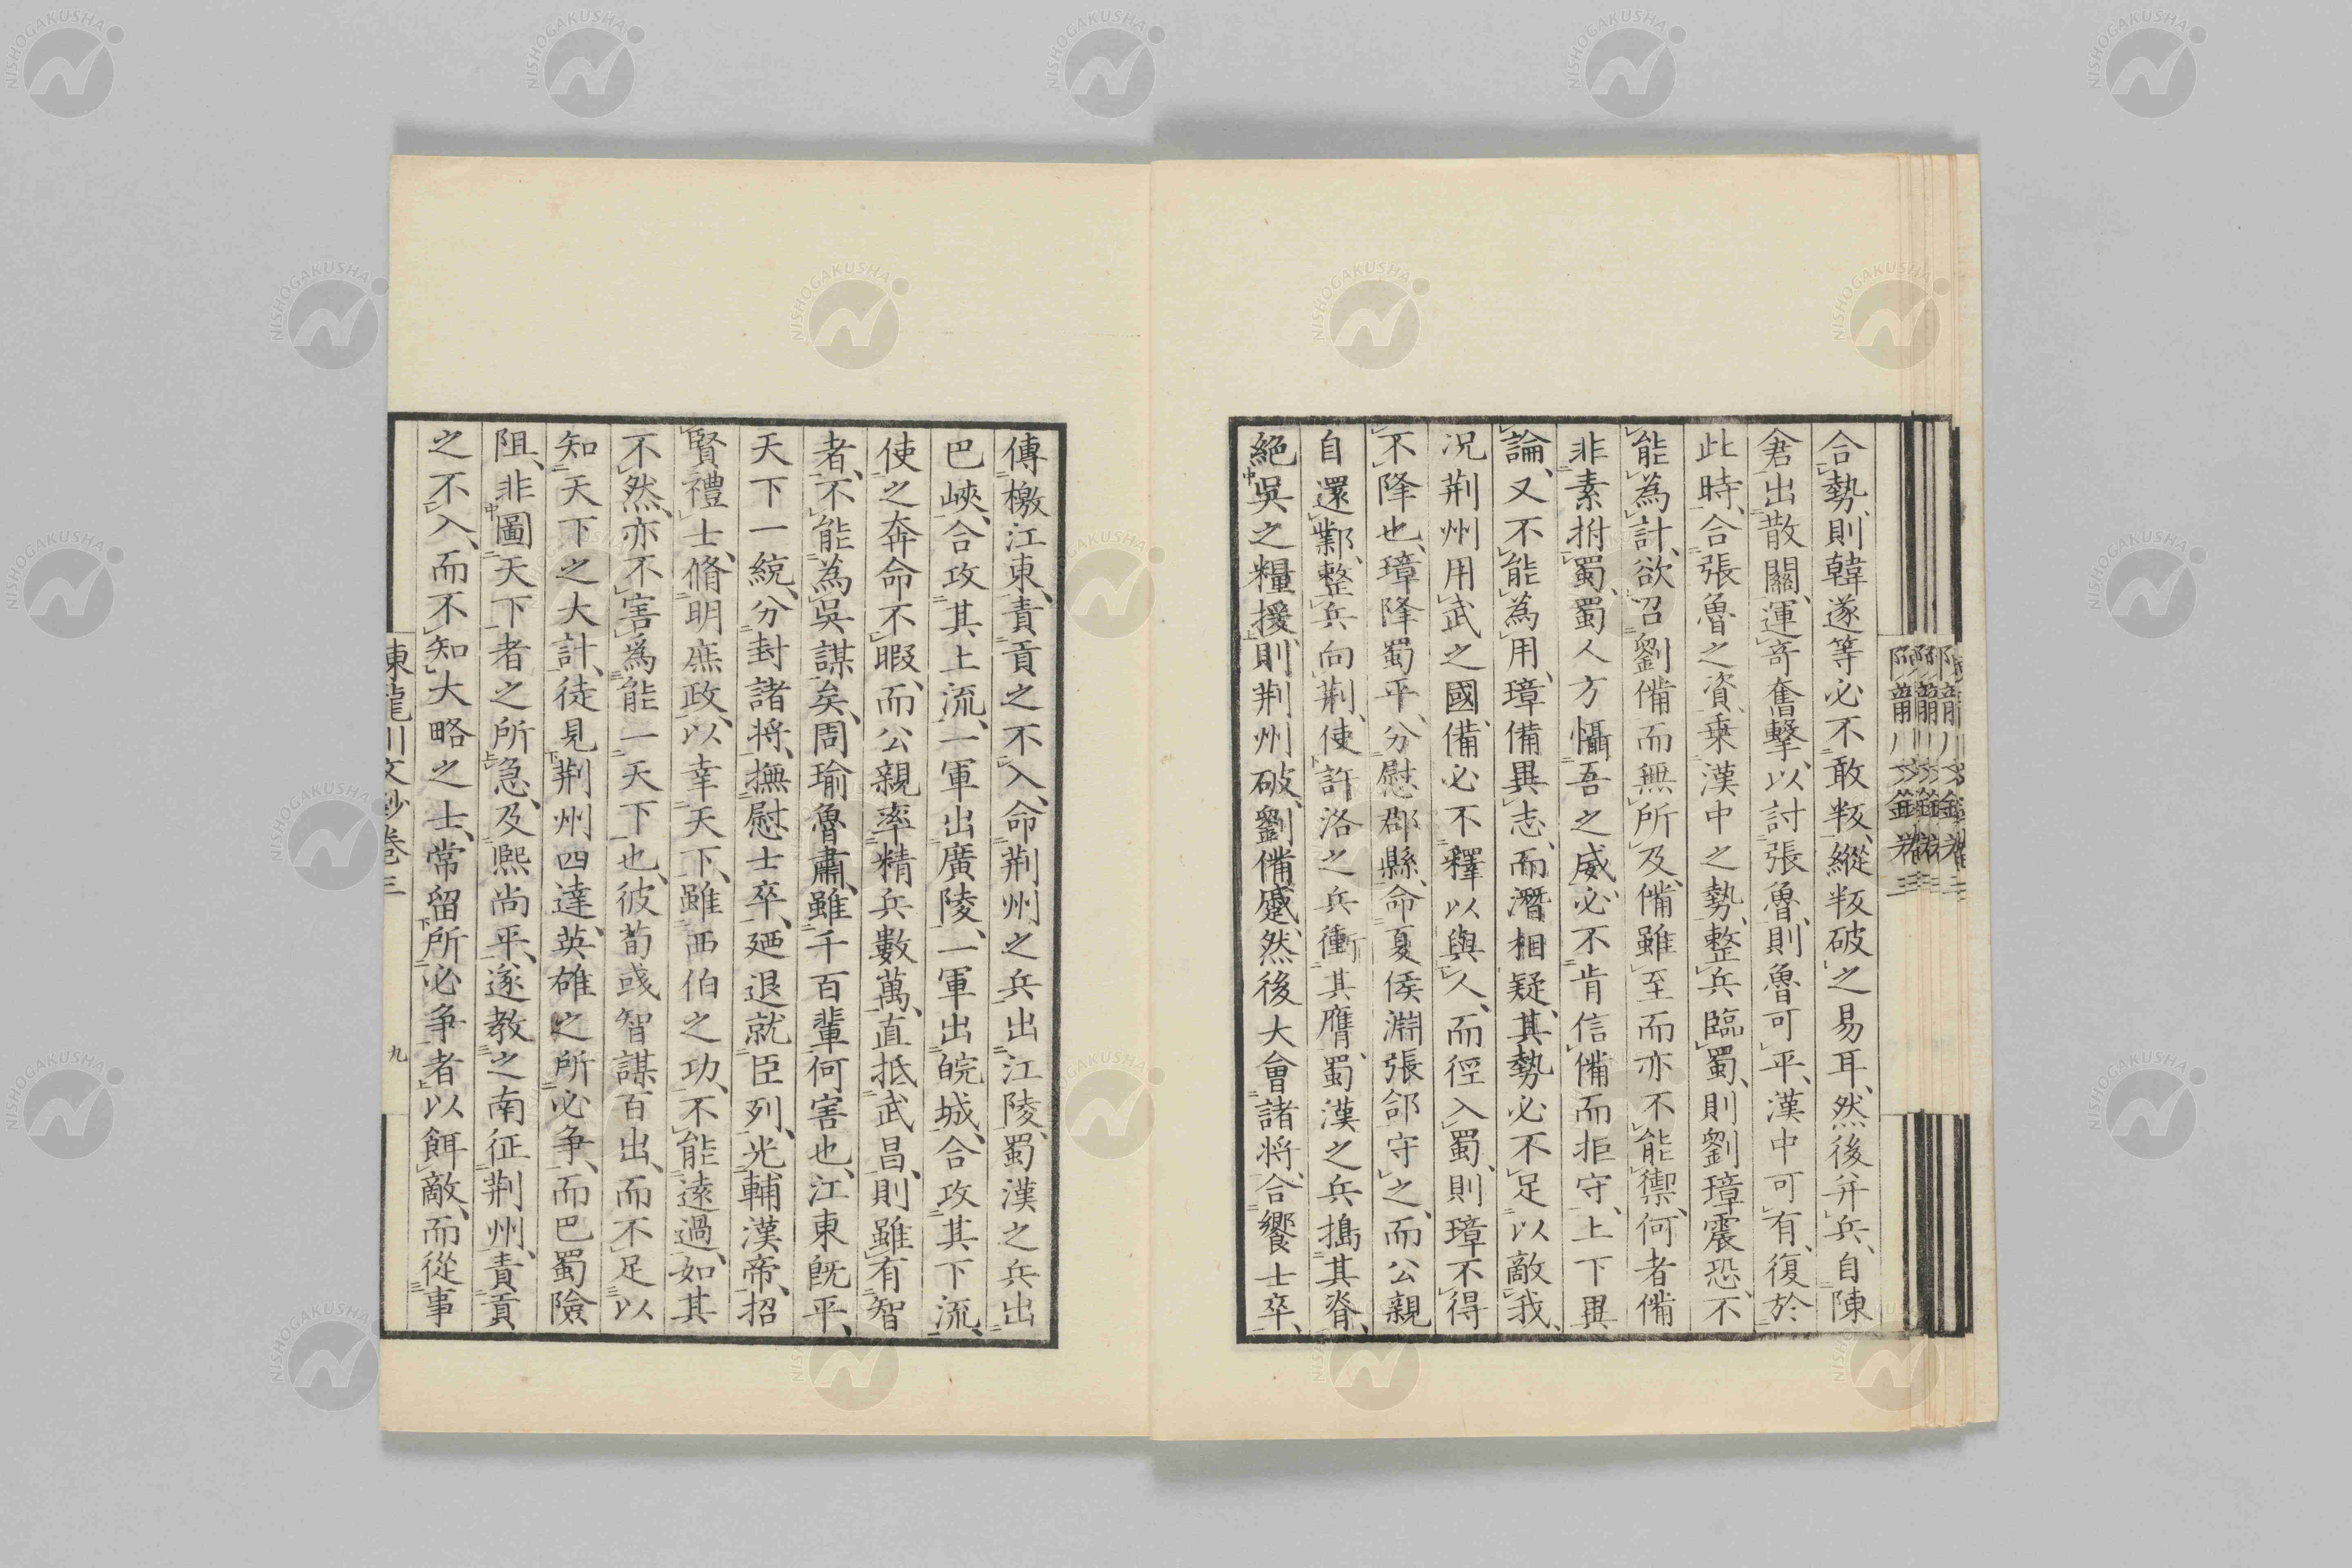 合勢、則韓遂等必不敢叛、縱叛破之易耳、然後并兵、自陳
倉出散關、運奇奮擊、以討張魯、則魯可平、漢中可有、復於
此時、合張魯之資、乗漢中之勢、整兵臨蜀、則劉璋震恐、不
能為計、欲召劉備而無所及、備雖至而亦不能禦、何者備
非素拊蜀、蜀人方懾吾之威、必不肯信備而拒守、上下異
論、又不能為用、璋備異志、而潛相疑、其勢必不足以敵我、
况荊州用武之國、備必不釋以與人、而徑入蜀、則璋不得
不降也、璋降蜀平、分慰郡縣、命夏侯淵張郃守之、而公親
自還鄴、整兵向荊、使許洛之兵衝其膺、蜀漢之兵搗其脊、
絕吳之糧援、則荊州破、劉備蹙、然後大會諸将、合饗士卒、
傳檄江東、責貢之不入、命荊州之兵出江陵、蜀漢之兵出
巴峽、合攻其上流、一軍出廣陵、一軍出皖城、合攻其下流、
使之奔命不暇、而公親率精兵數萬、直抵武昌、則雖有智
者、不能為吳謀矣、周瑜魯肅、雖千百輩何害也、江東既平、
天下一統、分封諸将、撫慰士卒、廼退就臣列、光輔漢帝、招
賢禮士、脩明庶政、以幸天下、雖西伯之功、不能遠過、如其
不然、亦不害爲能一天下也、彼荀彧智謀百出、而不足以
知天下之大計、徒見荊州四達、英雄之所必争、而巴蜀險
阻、非圖天下者之所急、及熙尚平、遂教之南征荊州、責貢
之不入、而不知大略之士、常留所必争者、以餌敵、而從事
陳龍川文鈔卷三
九